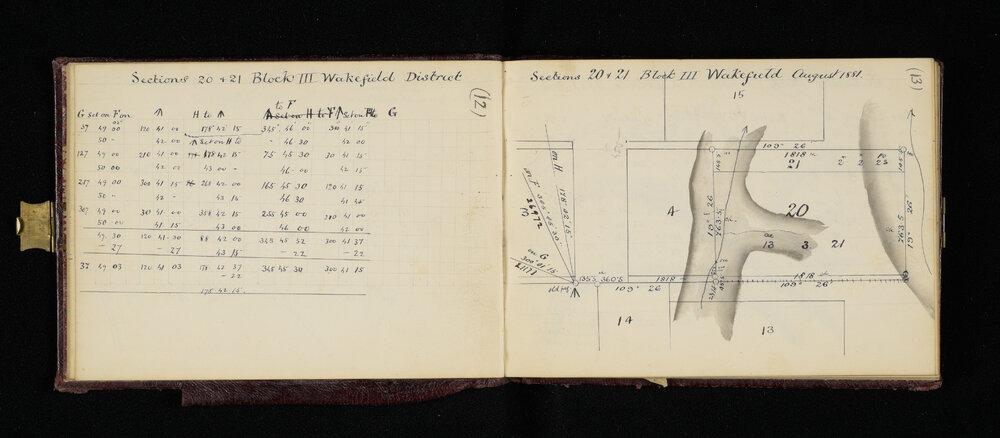 Sections 20 & 21 Block III Wakefield District
(12)
to F
G set on F on H to set on H to F set on G
37 49 00 120 41 00 178 42 15 345 46 00 300 41 15
50 - 42 00 set on H to - 46 30 42 00
127 49 00 210 41 00 178 42 15 75 45 30 30 41 15
50 00 42 00 43 00 - 46 - 00 42 15
217 49 00 300 41 15 268 42 00 165 45 30 120 41 15
50 - 42 - 43 15 46 30 41 45
307 49 00 30 41 00 358 42 15 255 45 00 210 41 00
50 00 41 15 43 00 46 00 42 00
49 30 120 41-30 88 42 00 345 45 52 300 41 37
- 27 - 27 43 15 - 22 - 22
37 49 03 120 41 03 178 42 37 345 45 30 300 41 15
- 22
178 42 15
Sections 20 & 21 Block III Wakefield August 1881.
(13)
15
109° 26
1818
21
on H 178° 42' 15"
on F 345° 45' 30"
on G
300° 41' 15"
4
19° 26
763.5
20
13
3
21
763.5
19° 26
1355 360.5
1818
1818
109° 26
109° 26'
14
13